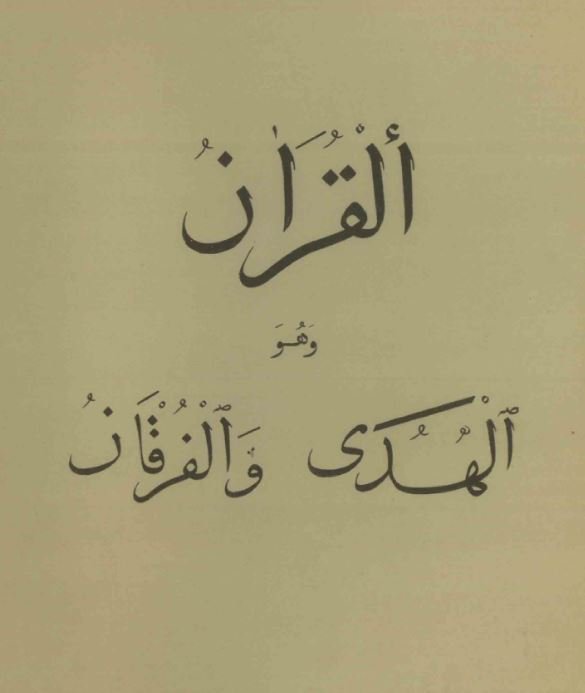 أَلْقُرَاٰنُ
وَهُوَ
ٱلْهُدَى وَٱلْفُرْقَانُ